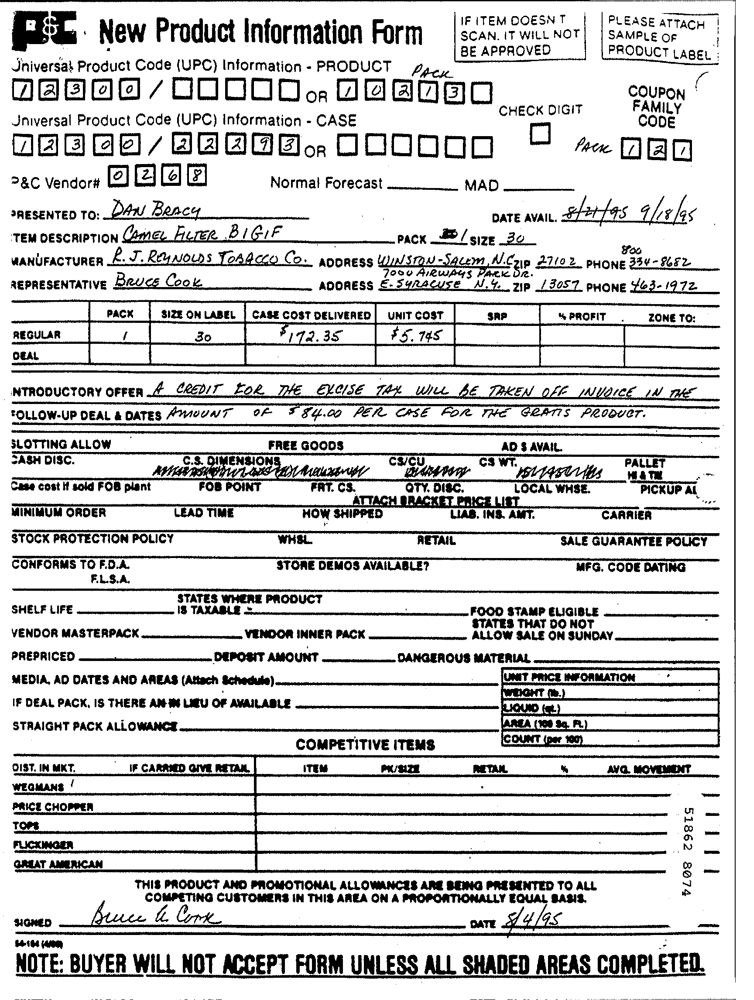 P&C New Product Information Form
IF ITEM DOESN'T
SCAN. IT WILL NOT
BE APPROVED
PLEASE ATTACH
SAMPLE OF
PRODUCT LABEL
Universal Product Code (UPC) Information - PRODUCT PACK
1 2 3 0 0 / OR 1 0 2 1 3
CHECK DIGIT
COUPON
FAMILY
CODE
Universal Product Code (UPC) Information - CASE
1 2 3 0 0 / 2 2 2 9 3 OR
PACK 1 2 1
P&C Vendor# 0 2 6 8 Normal Forecast MAD
PRESENTED TO: DAN BRACY DATE AVAIL. 8/21/95 9/18/95
ITEM DESCRIPTION CAMEL FILTER B1G1F PACK 1 SIZE 30
MANUFACTURER R. J. REYNOLDS TOBACCO CO. ADDRESS WINSTON-SALEM, N.C. ZIP 27102 PHONE 800 334-8682
REPRESENTATIVE BRUCE COOK ADDRESS 7000 AIRWAYS PARK DR. E. SYRACUSE N.Y. ZIP 13057 PHONE 463-1972
PACK SIZE ON LABEL CASE COST DELIVERED UNIT COST SRP % PROFIT ZONE TO:
REGULAR 1 30 $172.35 $5.745
DEAL
INTRODUCTORY OFFER A CREDIT FOR THE EXCISE TAX WILL BE TAKEN OFF INVOICE IN THE
FOLLOW-UP DEAL & DATES AMOUNT OF $84.00 PER CASE FOR THE GRATIS PRODUCT.
SLOTTING ALLOW FREE GOODS AD $ AVAIL.
CASH DISC. C.S. DIMENSIONS CS/CU CS WT. PALLET
HI & TIE
Case cost if sold FOB plant FOB POINT FRT. CS. QTY. DISC. LOCAL WHSE. PICKUP AL
ATTACH BRACKET PRICE LIST
MINIMUM ORDER LEAD TIME HOW SHIPPED LIAB. INS. AMT. CARRIER
STOCK PROTECTION POLICY WHSL. RETAIL SALE GUARANTEE POLICY
CONFORMS TO F.D.A. STORE DEMOS AVAILABLE? MFG. CODE DATING
F.L.S.A.
SHELF LIFE STATES WHERE PRODUCT IS TAXABLE FOOD STAMP ELIGIBLE
VENDOR MASTERPACK VENDOR INNER PACK STATES THAT DO NOT ALLOW SALE ON SUNDAY
PREPRICED DEPOSIT AMOUNT DANGEROUS MATERIAL
MEDIA, AD DATES AND AREAS (Attach Schedule) UNIT PRICE INFORMATION
WEIGHT (lb.)
IF DEAL PACK, IS THERE AN IN LIEU OF AVAILABLE LIQUID (qt.)
STRAIGHT PACK ALLOWANCE AREA (100 Sq. Ft.)
COUNT (per 100)
COMPETITIVE ITEMS
DIST. IN MKT. IF CARRIED GIVE RETAIL ITEM PK/SIZE RETAIL % AVG. MOVEMENT
WEGMANS
PRICE CHOPPER
TOPS
FLICKINGER
GREAT AMERICAN
51862 8074
THIS PRODUCT AND PROMOTIONAL ALLOWANCES ARE BEING PRESENTED TO ALL
COMPETING CUSTOMERS IN THIS AREA ON A PROPORTIONALLY EQUAL BASIS.
SIGNED Bruce A Cook DATE 8/4/95
54-164 (4/88)
NOTE: BUYER WILL NOT ACCEPT FORM UNLESS ALL SHADED AREAS COMPLETED.